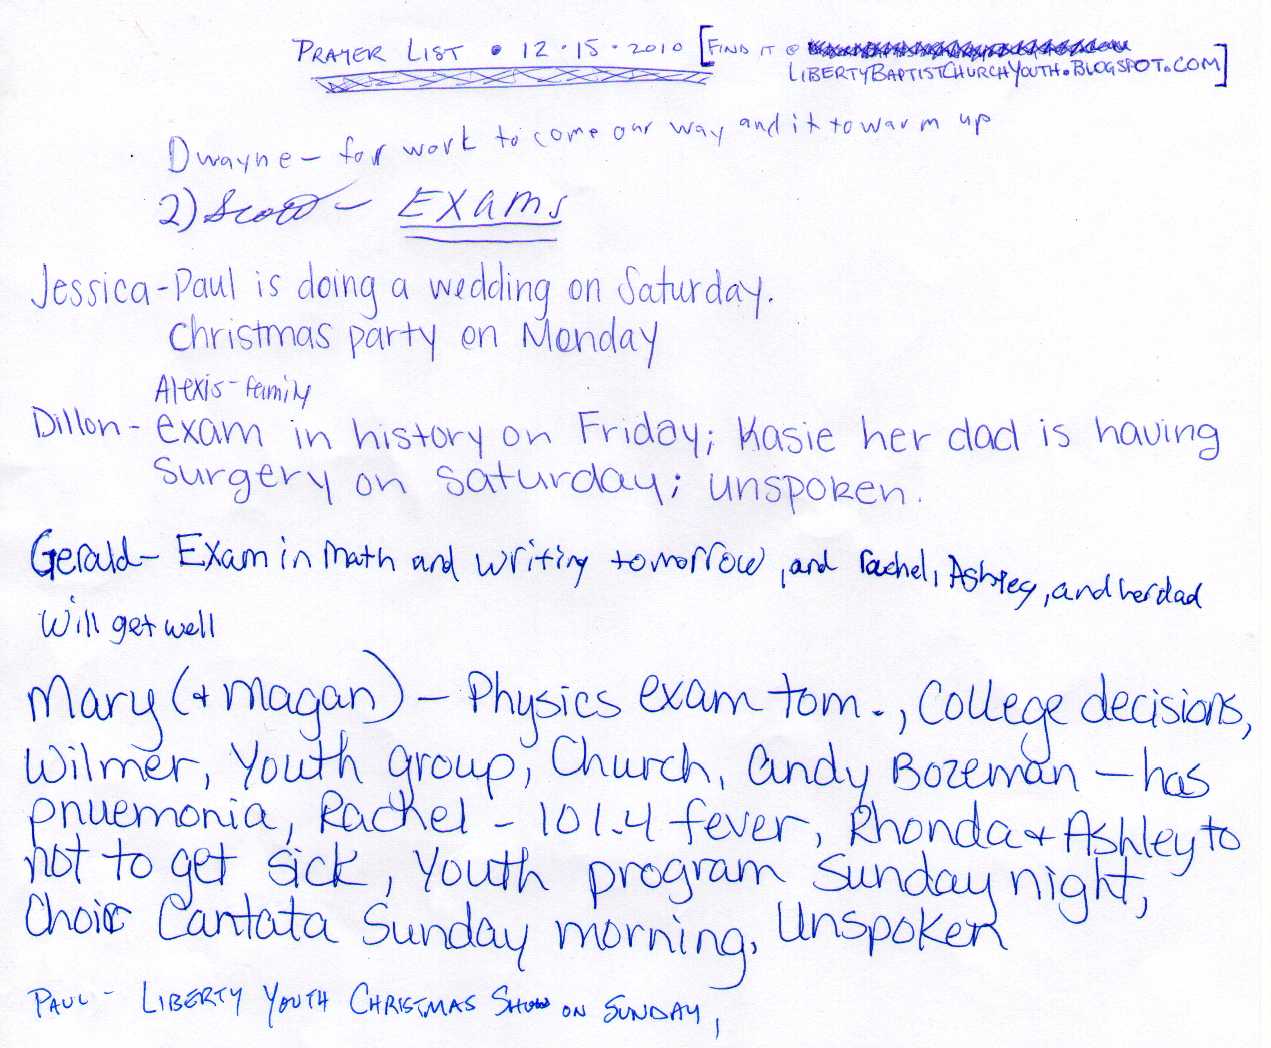 PRAYER LIST • 12 • 15 • 2010 [FIND IT @
LIBERTYBAPTISTCHURCHYOUTH.BLOGSPOT.COM]
Dwayne - for work to come our way and it to warm up
2) Scott - Exams
Jessica - Paul is doing a wedding on Saturday.
Christmas party on Monday
Alexis - family
Dillon - exam in history on Friday; Kasie her dad is having
surgery on saturday; unspoken.
Gerald - Exam in math and writing tomorrow, and rachel, Ashley, and her dad
will get well
Mary (+ Magan) - Physics exam tom., College decisions,
Wilmer, Youth group, Church, Andy Bozeman - has
pnuemonia, Rachel - 101.4 fever, Rhonda + Ashley to
not to get sick, Youth program Sunday night,
Choir Cantata Sunday morning, Unspoken
PAUL - LIBERTY YOUTH CHRISTMAS SHOW ON SUNDAY,